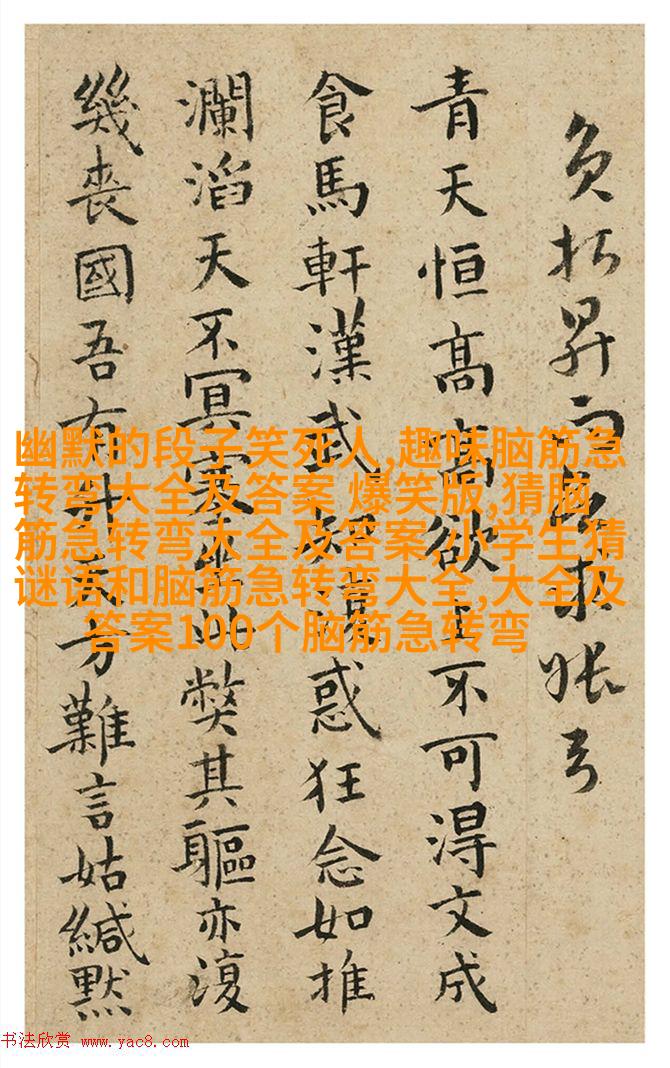 青天恒高高欲上不可得文成
食馬軒漢武惑狂念如推
瀾滔天不冥此獘其軀亦復
幾喪國吾有升天方難言姑緘默
幽默的段子笑死人,趣味脑筋急
转弯大全及答案 爆笑版,猜脑
筋急转弯大全及答案,小学生猜
谜语和脑筋急转弯大全,大全及
答案100个脑筋急转弯
书法欣赏 www.yac8.com